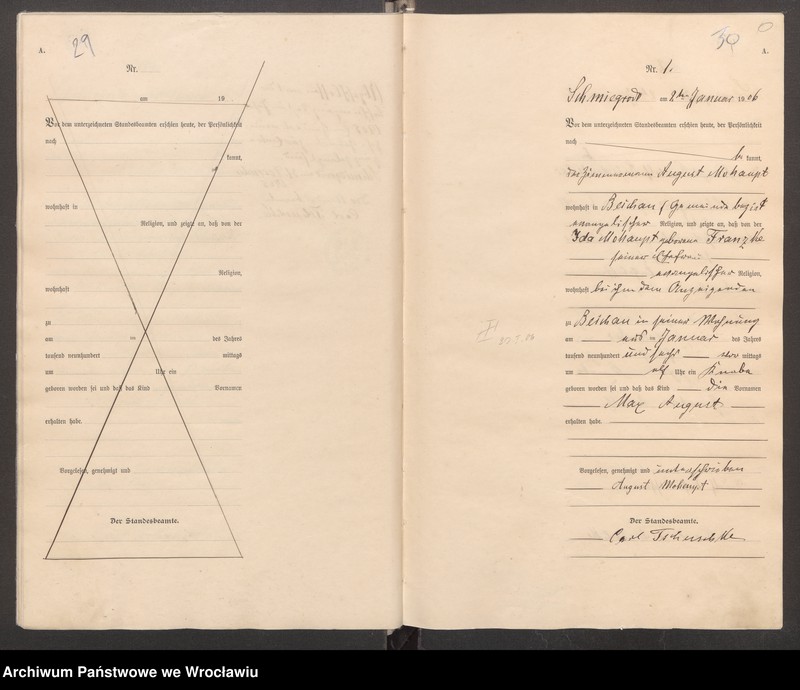 A.
29
Nr.
am 19
Vor dem unterzeichneten Standesbeamten erschien heute, der Persönlichkeit
nach
kannt,
wohnhaft in
Religion, und zeigte an, daß von der
Religion,
wohnhaft
zu
am ten des Jahres
tausend neunhundert mittags
um Uhr ein
geboren worden sei und daß das Kind Vornamen
erhalten habe.
Vorgelesen, genehmigt und
Der Standesbeamte.
30
A.
Nr. 1.
Schmiegrode am 2ten Januar 1906
Vor dem unterzeichneten Standesbeamten erschien heute, der Persönlichkeit
nach
be kannt,
der Zimmermann August Mohaupt
wohnhaft in Beichau (Gemeindebezirk
evangelischer Religion, und zeigte an, daß von der
Ida Mohaupt geborene Franzke
seiner Ehefrau
evangelischer Religion,
wohnhaft bei ihm dem Anzeigenden
zu Beichau in seiner Wohnung
am ersten Januar des Jahres
tausend neunhundert und sechs vor mittags
um elf Uhr ein Knabe
geboren worden sei und daß das Kind die Vornamen
Max August
erhalten habe.
Vorgelesen, genehmigt und unterschrieben
August Mohaupt
Der Standesbeamte.
Carl Tscheuschke
Archiwum Państwowe we Wrocławiu